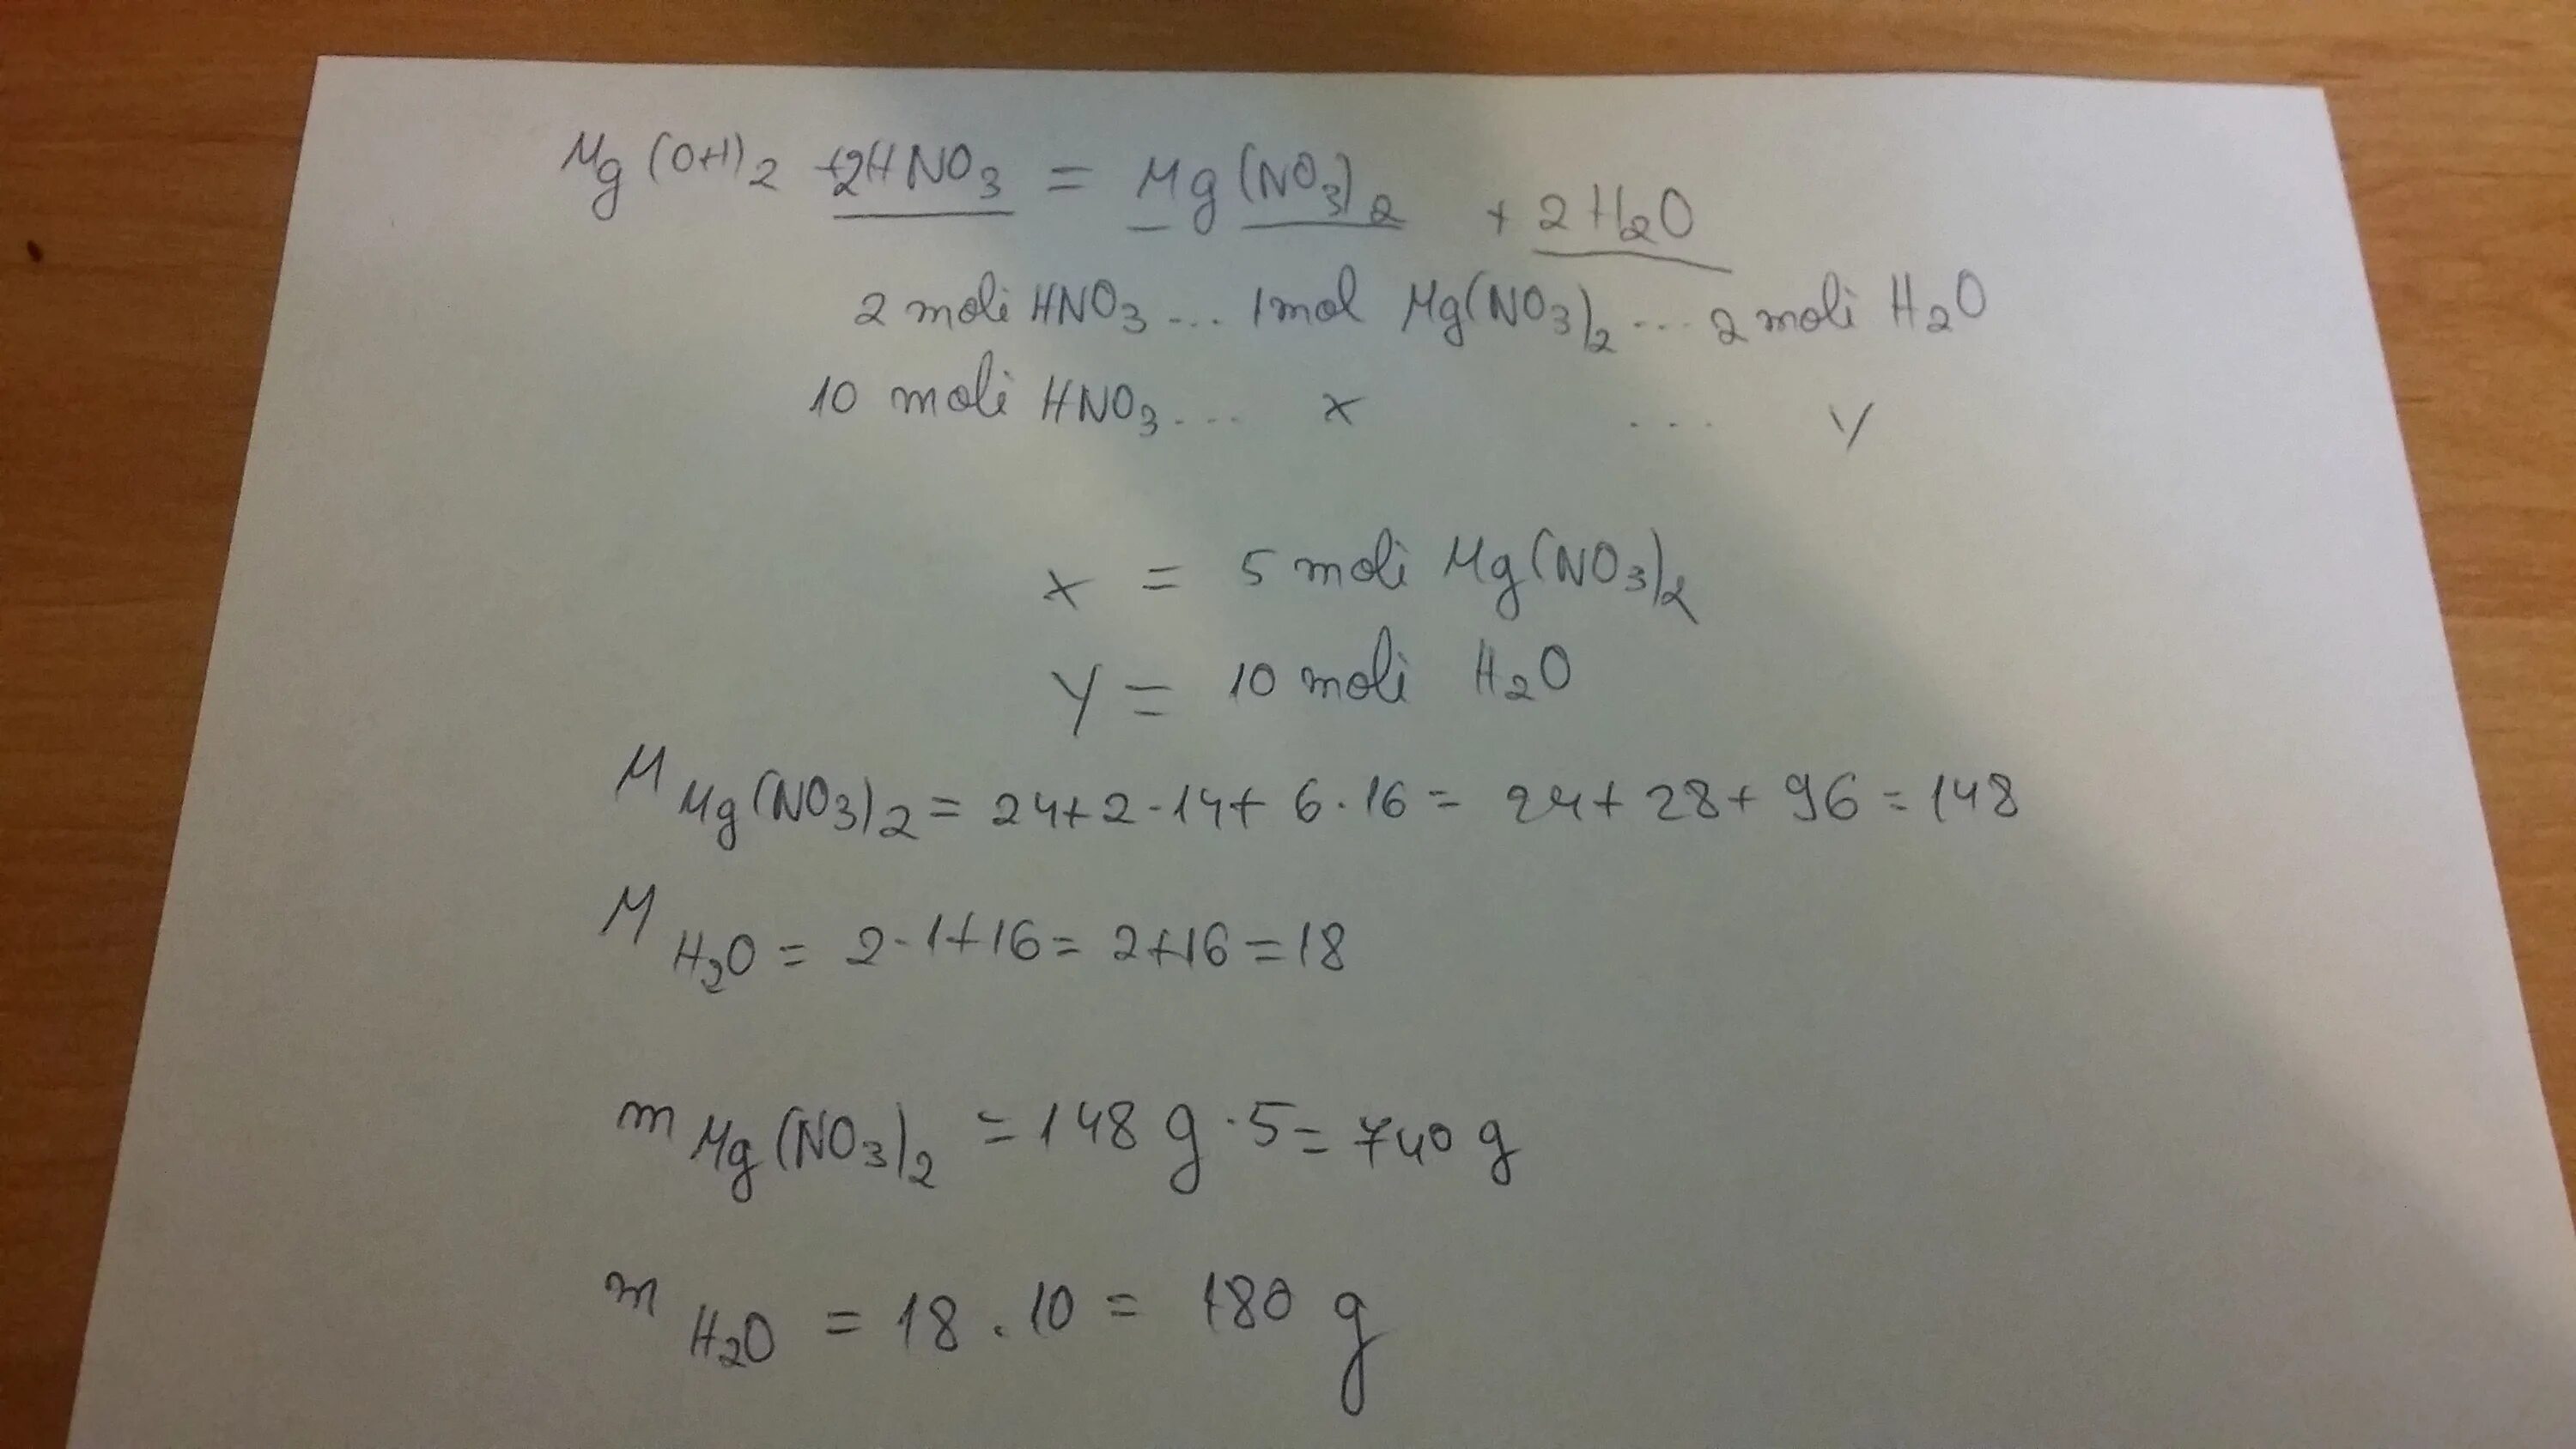 Mg(OH)2 +2HNO3 = Mg(NO3)2 + 2H2O
2 moli HNO3 ... 1mol Mg(NO3)2 ... 2 moli H2O
10 moli HNO3 ... x ... y
x = 5 moli Mg(NO3)2
y = 10 moli H2O
M Mg(NO3)2 = 24+2·14+6·16= 24+28+96=148
M H2O = 2·1+16= 2+16=18
m Mg(NO3)2 = 148 g·5= 740 g
m H2O = 18.10 = 180 g